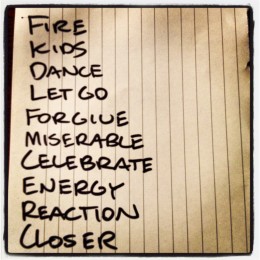 FIRE
KIDS
DANCE
LET GO
FORGIVE
MISERABLE
CELEBRATE
ENERGY
REACTION
CLOSER